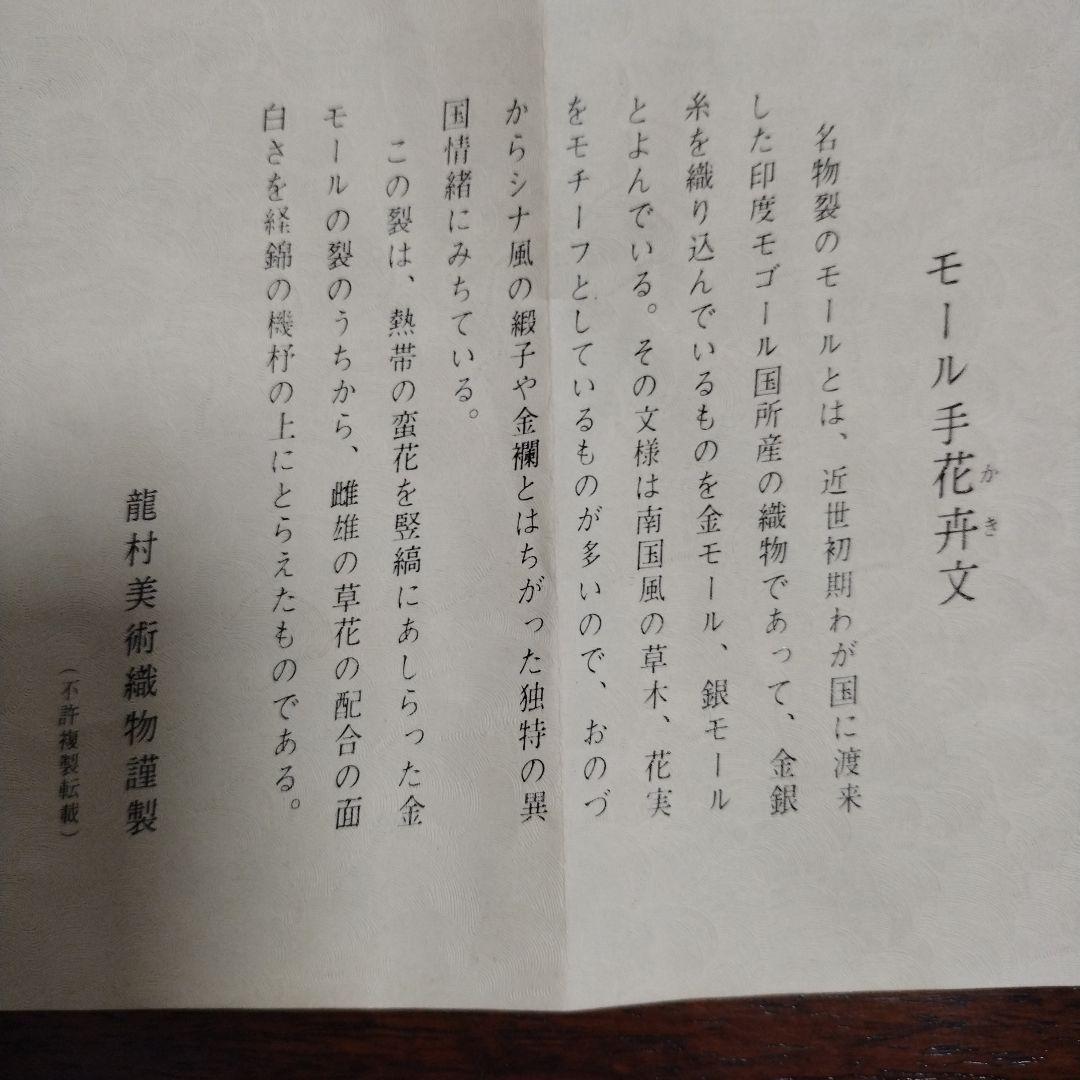 モール手花卉文
かき
名物裂のモールとは、近世初期わが国に渡来
した印度モゴール国所産の織物であって、金銀
糸を織り込んでいるものを金モール、銀モール
とよんでいる。その文様は南国風の草木、花実
をモチーフとしているものが多いので、おのづ
からシナ風の緞子や金襴とはちがった独特の異
国情緒にみちている。
この裂は、熱帯の蛮花を竪縞にあしらった金
モールの裂のうちから、雌雄の草花の配合の面
白さを経錦の機杼の上にとらえたものである。
龍村美術織物謹製
（不許複製転載）